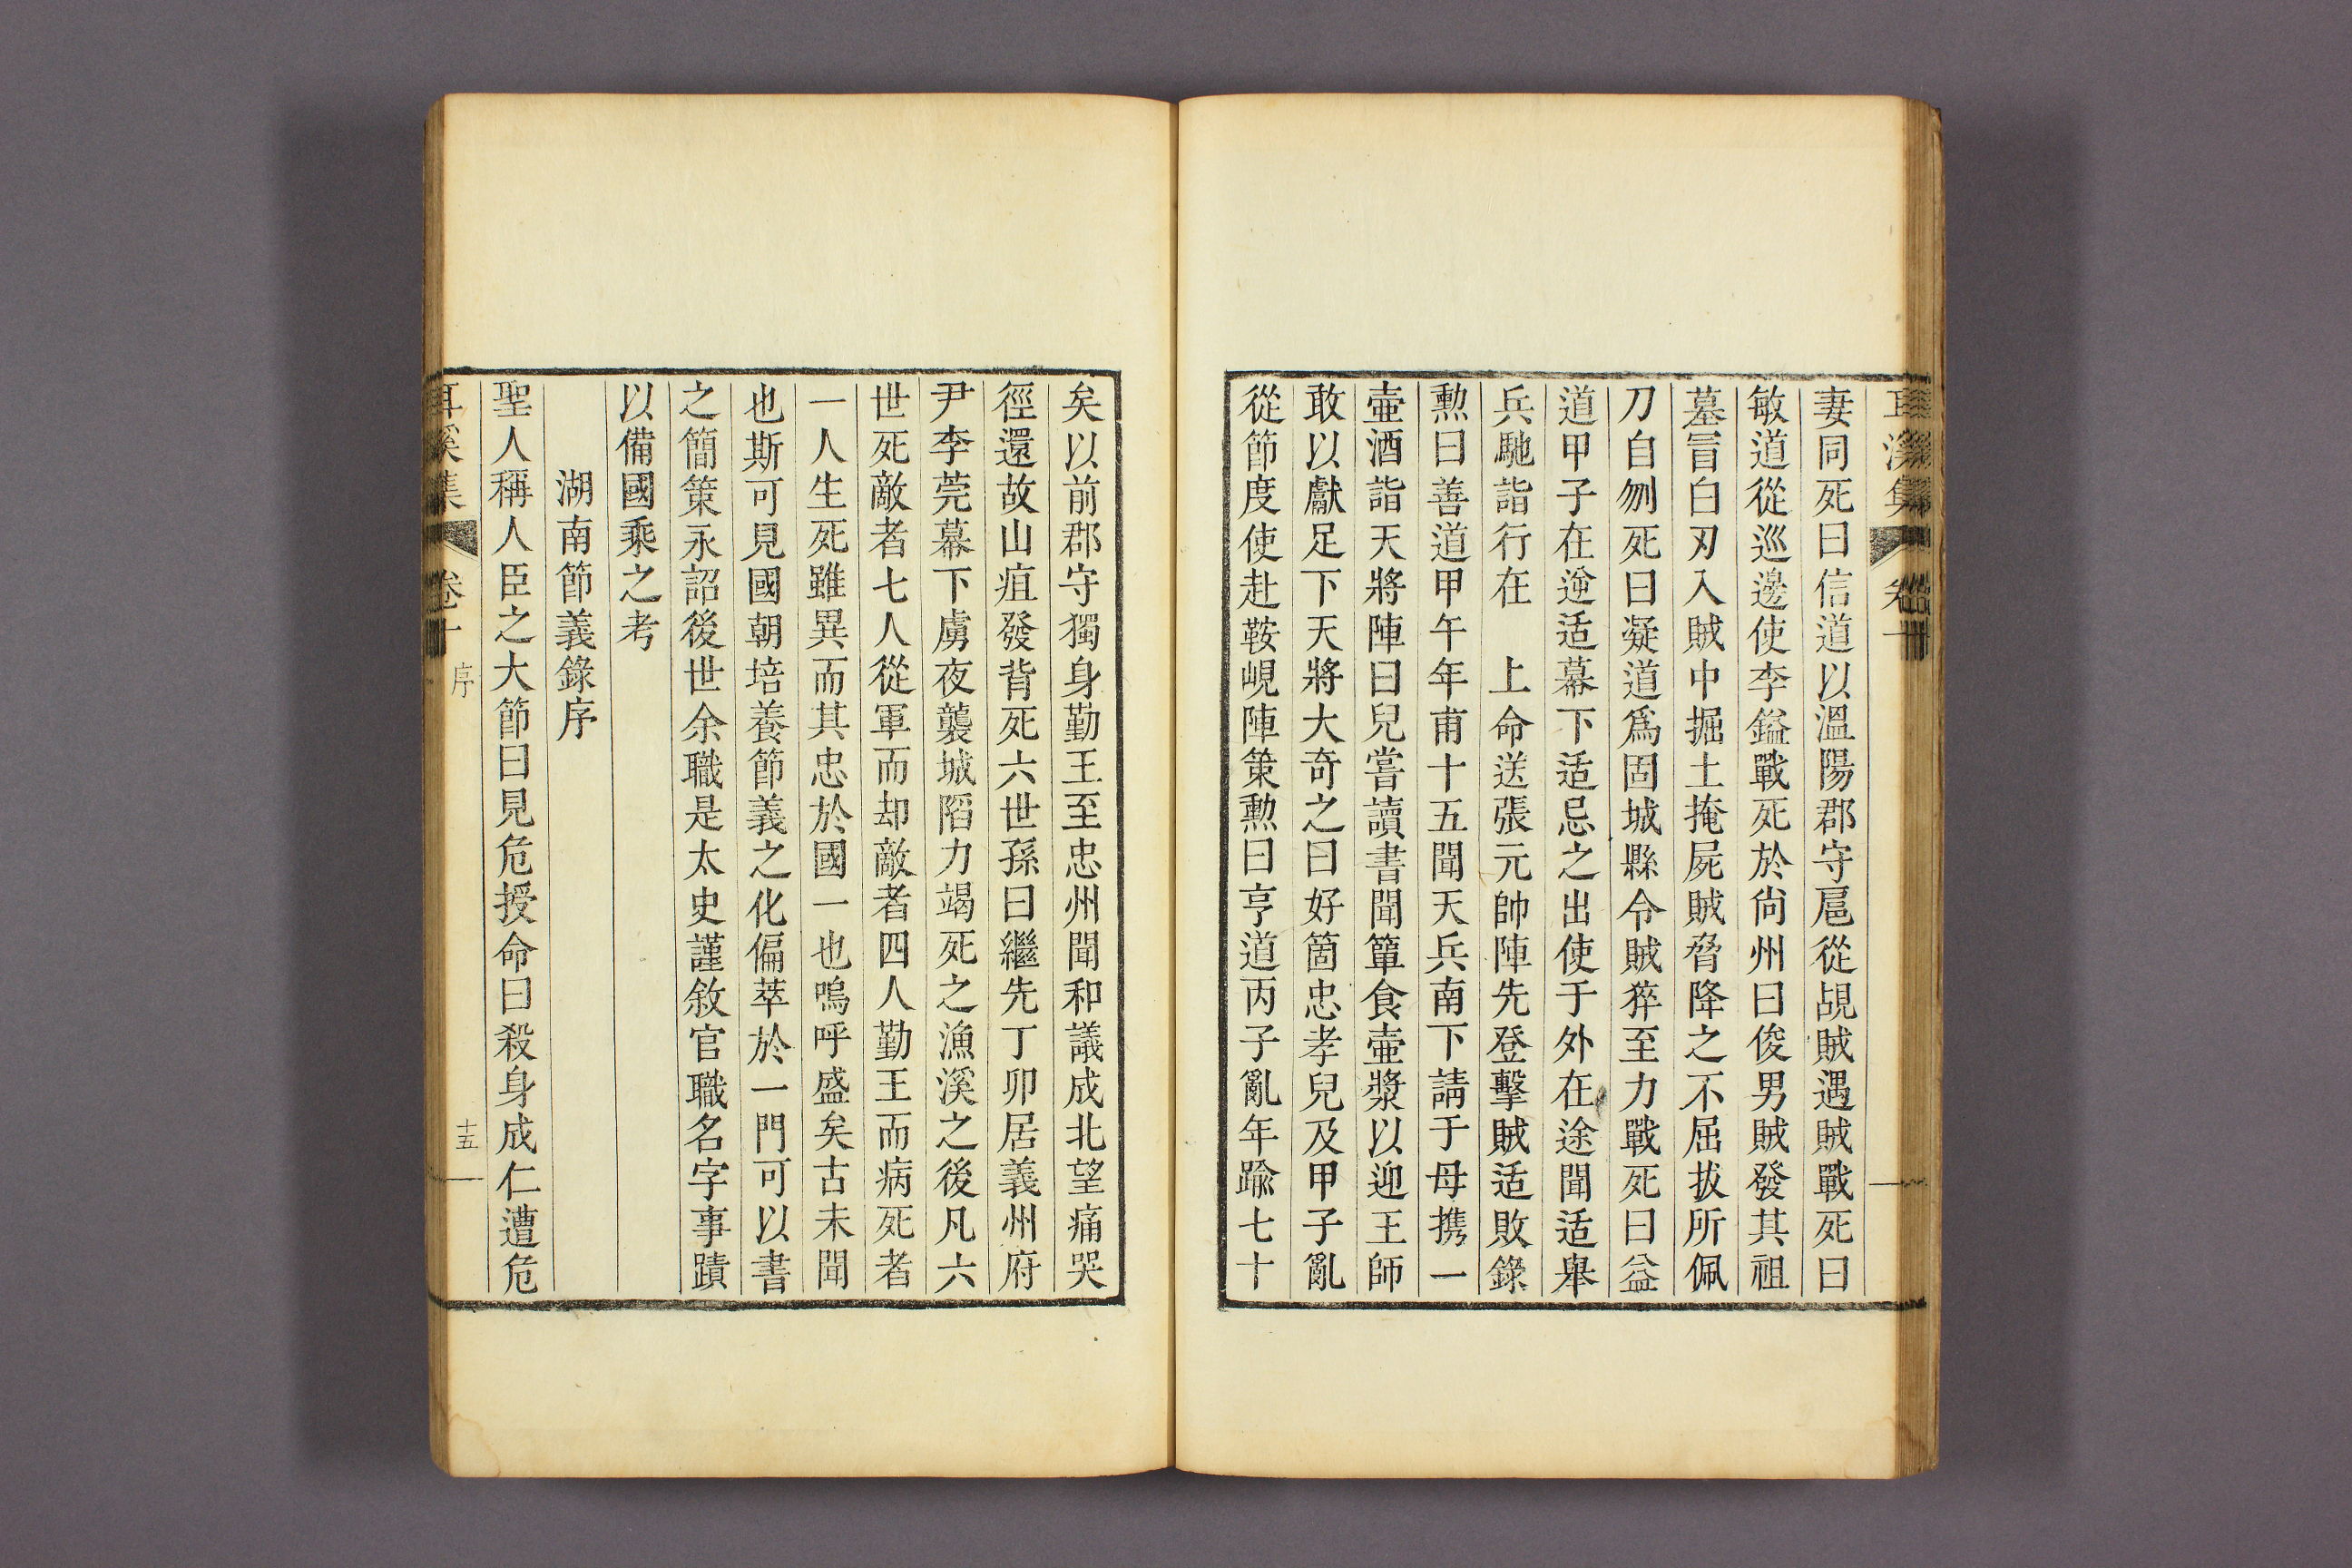 耳溪集 卷十
妻同死曰信道以溫陽郡守扈從覘賊遇賊戰死曰
敏道從巡邊使李鎰戰死於尙州曰俊男賊發其祖
墓冒白刃入賊中掘土掩屍賊脅降之不屈拔所佩
刀自刎死曰凝道爲固城縣令賊猝至力戰死曰益
道甲子在逆适幕下适忌之出使于外在途聞适舉
兵馳詣行在　上命送張元帥陣先登擊賊适敗錄
勳曰善道甲午年甫十五聞天兵南下請于母携一
壷酒詣天將陣曰兒嘗讀書聞簞食壷漿以迎王師
敢以獻足下天將大奇之曰好箇忠孝兒及甲子亂
從節度使赴鞍峴陣策勳曰亨道丙子亂年踰七十
矣以前郡守獨身勤王至忠州聞和議成北望痛哭
徑還故山疽發背死六世孫曰繼先丁卯居義州府
尹李莞幕下虜夜襲城陷力竭死之漁溪之後凡六
世死敵者七人從軍而却敵者四人勤王而病死者
一人生死雖異而其忠於國一也嗚呼盛矣古未聞
也斯可見國朝培養節義之化偏萃於一門可以書
之簡策永詔後世余職是太史謹敘官職名字事蹟
以備國乘之考
湖南節義錄序
聖人稱人臣之大節曰見危授命曰殺身成仁遭危
耳溪集 卷十 序 十五